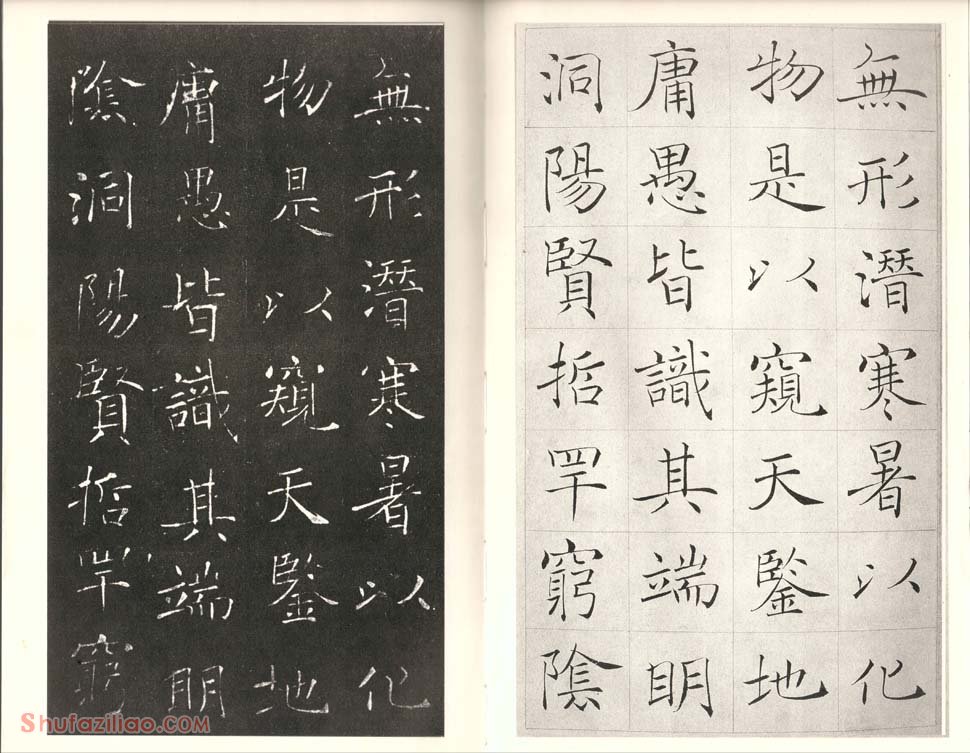 無形潛寒暑以化
物是以窺天鑒地
庸愚皆識其端明
洞陽賢哲罕窮陰
無形潛寒暑以化
物是以窺天鑒地
庸愚皆識其端明
陰洞陽賢哲罕窮
Shufaziliao.com